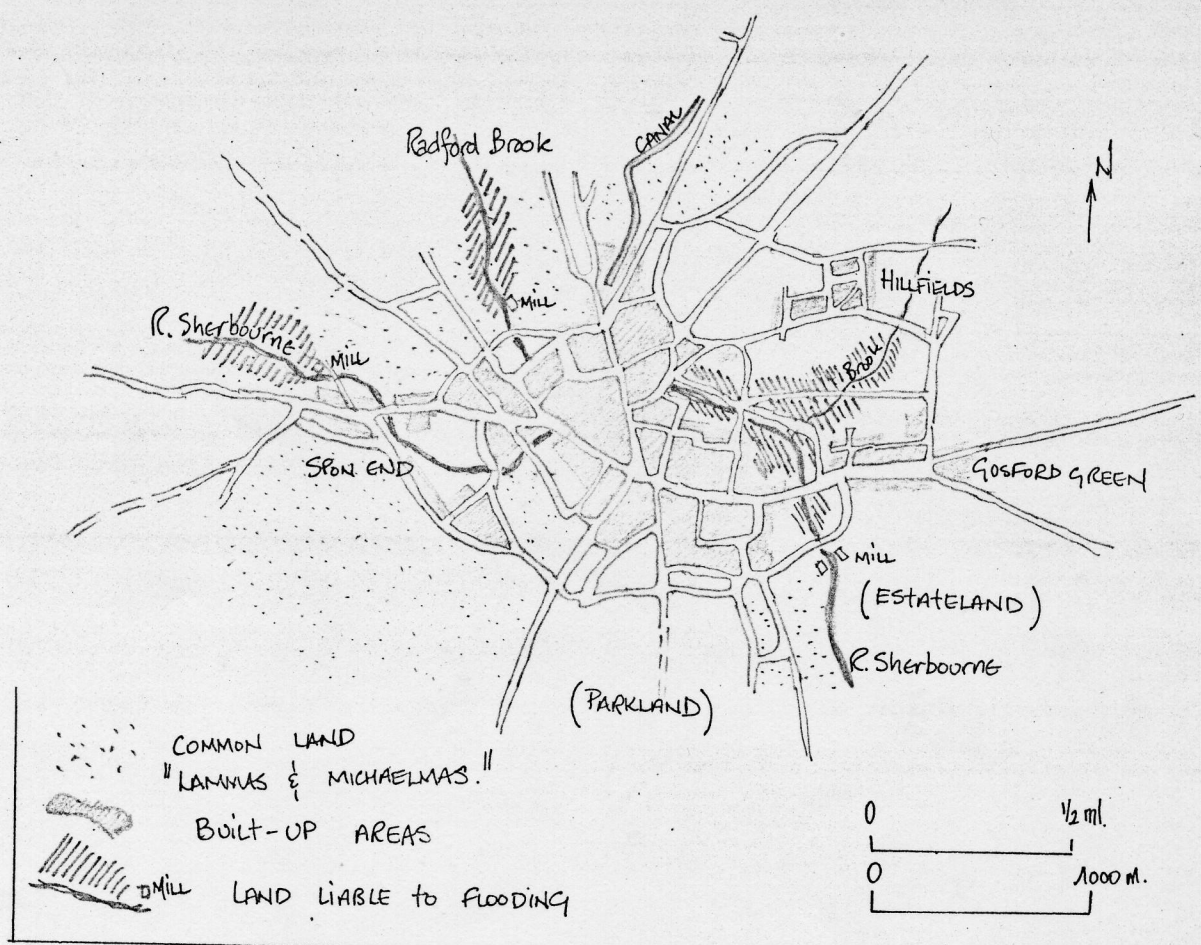 CANAL
Radford Brook
N
MILL
HILLFIELDS
R. Sherbourne
MILL
Brook
SPON END
GOSFORD GREEN
MILL
(ESTATELAND)
R. Sherbourne
(PARKLAND)
COMMON LAND
"LAMMAS & MICHAELMAS."
BUILT-UP AREAS
MILL LAND LIABLE to FLOODING
0 ½ ml.
0 1000 m.